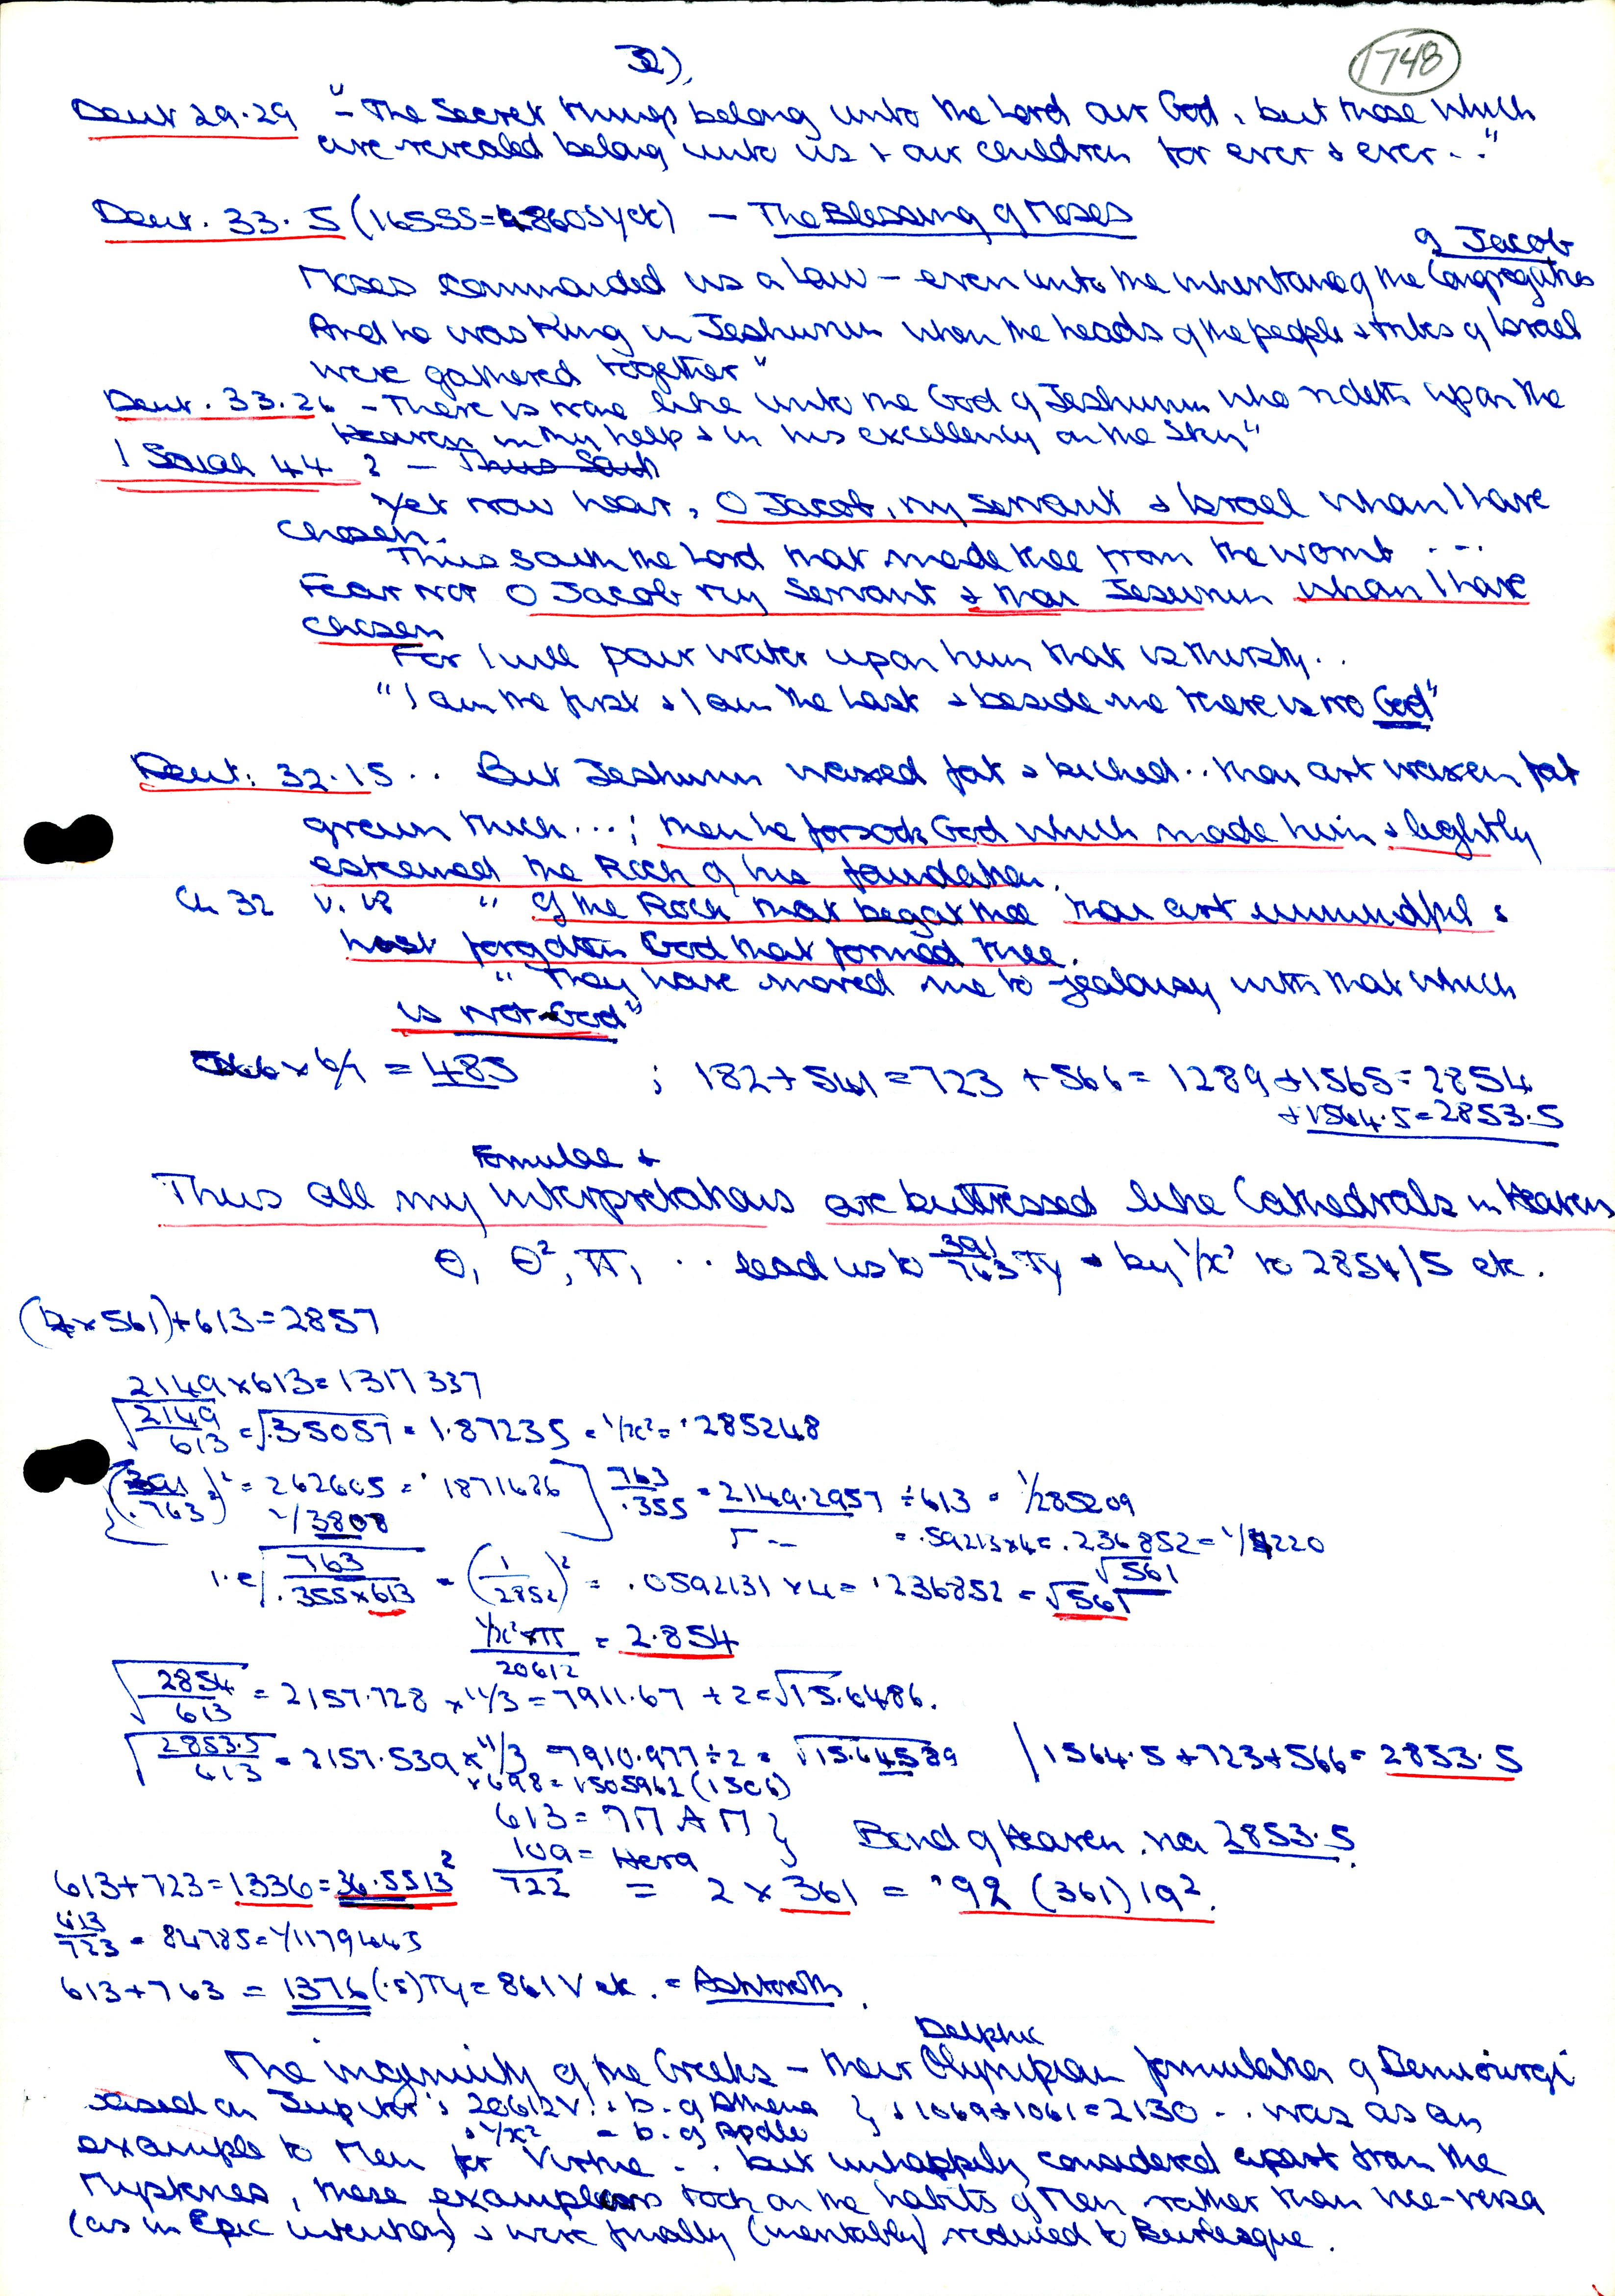 32).
1748
Deut 29.29 "- The Secret things belong unto the Lord our God, but those which
are revealed belong unto us & our children for ever & ever .."
Deut. 33.5 ( - The Blessing of Moses
of Jacob
Moses commanded us a Law - even unto the inheritance of the Congregation
And he was King in Jeshurun when the heads of the people & tribes of Israel
were gathered together"
Deut. 33.26 - There is none like unto the God of Jeshurun who rideth upon the
Heaven in thy help & in his excellency on the Sky"
Isaiah 44 2 - Thus Saith
Yet now hear, O Jacob, my Servant & Israel whom I have
chosen.
Thus saith the Lord that made thee from the womb ...
Fear not O Jacob my Servant & thou Jesurun whom I have
chosen
For I will pour water upon him that is thirsty..
"I am the first & I am the Last & beside me there is no God"
Deut: 32.15 .. But Jeshurun waxed fat & kicked .. thou art waxen fat
grown thick ...; then he forsook God which made him & lightly
esteemed the Rock of his foundation.
Ch 32 v. 18 " Of the Rock that begat thee thou art unmindful &
hast forgotten God that formed thee.
" They have moved me to jealousy with that which
is not God"
566 x 6/7 = 485 ; 182 + 541 = 723 + 566 = 1289 + 1565 = 2854
+ 1564.5 = 2853.5
Formulae &
Thus all my interpretations are buttressed like Cathedrals in Heaven
θ, θ², π, .. lead us to 391/763 Ty by 1/x² to 2854/5 etc.
(4 x 561) + 613 = 2857
2149 x 613 = 1317337
√2149/613 = √3.5057 = 1.87235 = 1/x² = .285248
(391/.763)² = 262605 = .1871636 ] 763/.355 = 2149.2957 ÷ 613 = 1/285209
1/3808 = .59213x4 = .236852 = 1/4220
i.e √763/.355x613 = (1/2852)² = .0592131 x 4 = .236852 = √561
√561
1/x² x π/20612 = 2.854
√2854/613 = 2157.728 x 11/3 = 7911.67 ÷ 2 = √15.6486.
√2853.5/613 = 2157.539 x 11/3 = 7910.977 ÷ 2 = √15.64589 | 1564.5 + 723 + 566 = 2853.5
x 698 = 1505962 (1506)
613 =
109 = Hera } Bend of Heaven. 2853.5.
613 + 723 = 1336 = 36.5513² 722 = 2 x 361 = .92 (361) 19².
613/723 = 84785 = 1/1179445
613 + 763 = 1376 (.5) Ty = 861 V etc. = Ashtoreth.
Delphic
The ingenuity of the Greeks - their Olympian formulation of Demiurgi
based on Jupiter's 20612V. & b. of Athena } & 1069 + 1061 = 2130 .. was as an
& 1/x² = b. of Apollo
example to Men for Virtue .. but unhappily considered apart from the
Mysteries, these took on the habits of Men rather than vice-versa
(as in Epic intention) & were finally (mentally) reduced to Burlesque.